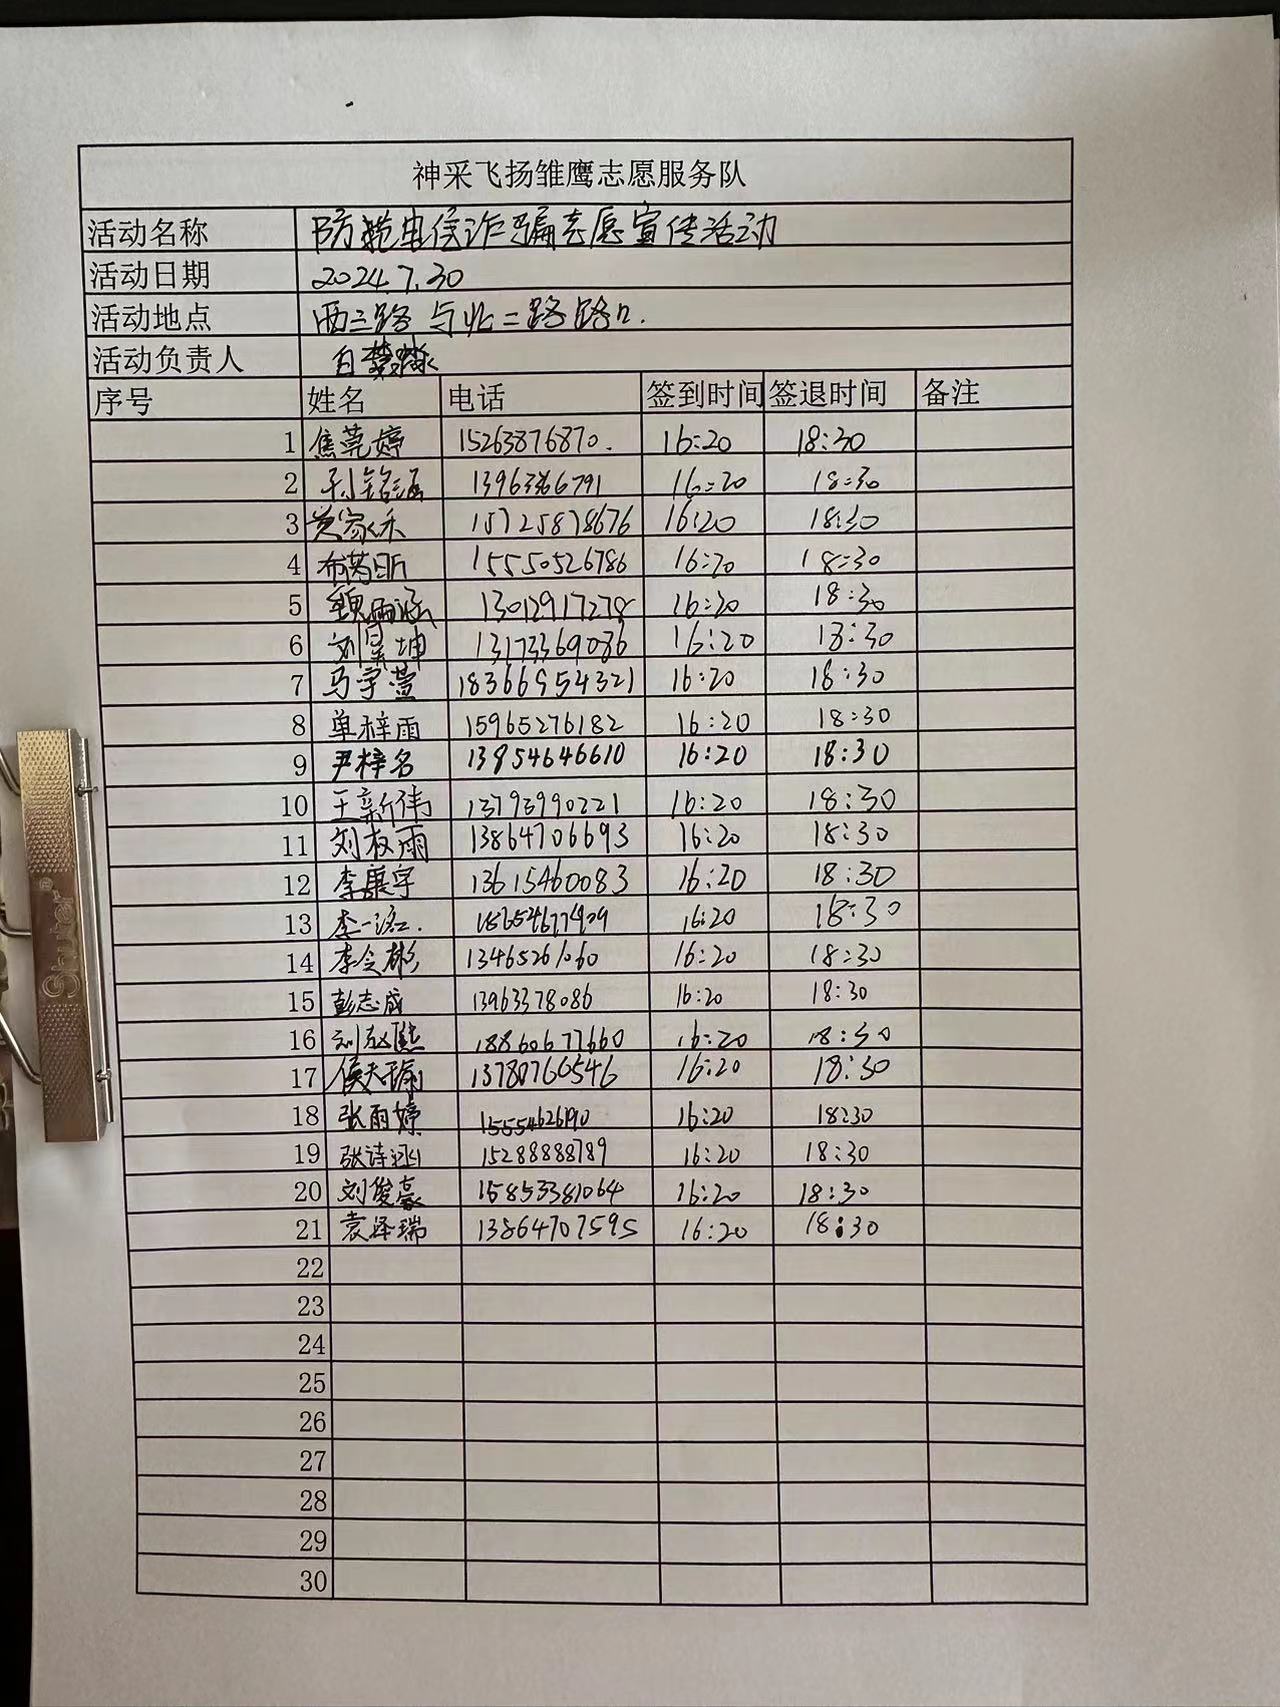 神采飞扬雏鹰志愿服务队
活动名称 防范电信诈骗志愿宣传活动
活动日期 2024.7.30
活动地点 西三路与北二路路口.
活动负责人 白
序号 姓名 电话 签到时间 签退时间 备注
1 焦莞婷 15263876870. 16:20 18:30
2 铭涵 1396366791 16:20 18:30
3 黄家禾 15725878676 16:20 18:30
4 布芮昕 15550526786 16:20 18:30
5 魏雨涵 13012917278 16:20 18:30
6 刘昊坤 13173369086 16:20 18:30
7 马宇萱 18366954321 16:20 18:30
8 单梓雨 15965276182 16:20 18:30
9 尹梓名 13954646610 16:20 18:30
10 王新伟 13793990221 16:20 18:30
11 刘权雨 13864706693 16:20 18:30
12 李康宇 13615460083 16:20 18:30
13 李一 16:20 18:30
14 李会彬 13465261060 16:20 18:30
15 彭志成 13963378086 16:20 18:30
16 刘赵熙 18860677660 16:20 18:30
17 侯天瑜 13780766546 16:20 18:30
18 张雨婷 15554626190 16:20 18:30
19 张诗涵 15288888789 16:20 18:30
20 刘俊豪 15853381064 16:20 18:30
21 袁泽瑞 13864707595 16:20 18:30
22
23
24
25
26
27
28
29
30
Shuter®